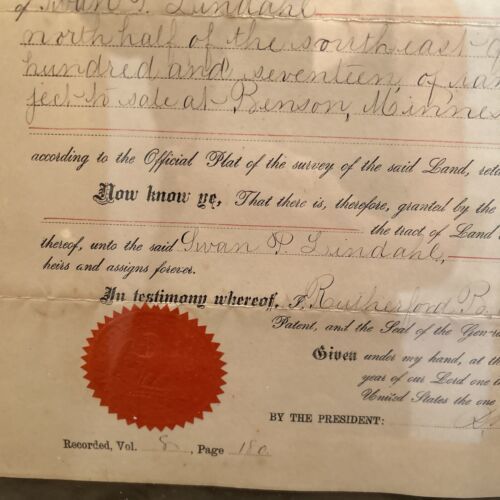 of Swan P. Lindahl
north half of the south east q
hundred and seventeen, of ran
ject to sale at Benson, Minnes
according to the Official Plat of the survey of the said Land, retu
Now know ye, That there is, therefore, granted by the
the tract of Land
thereof, unto the said Swan P. Lindahl,
heirs and assigns forever.
In testimony whereof, I, Rutherford
Patent, and the Seal of the Gen
Given under my hand, at th
year of our Lord one t
United States the one
BY THE PRESIDENT:
Recorded, Vol. 8, Page 180